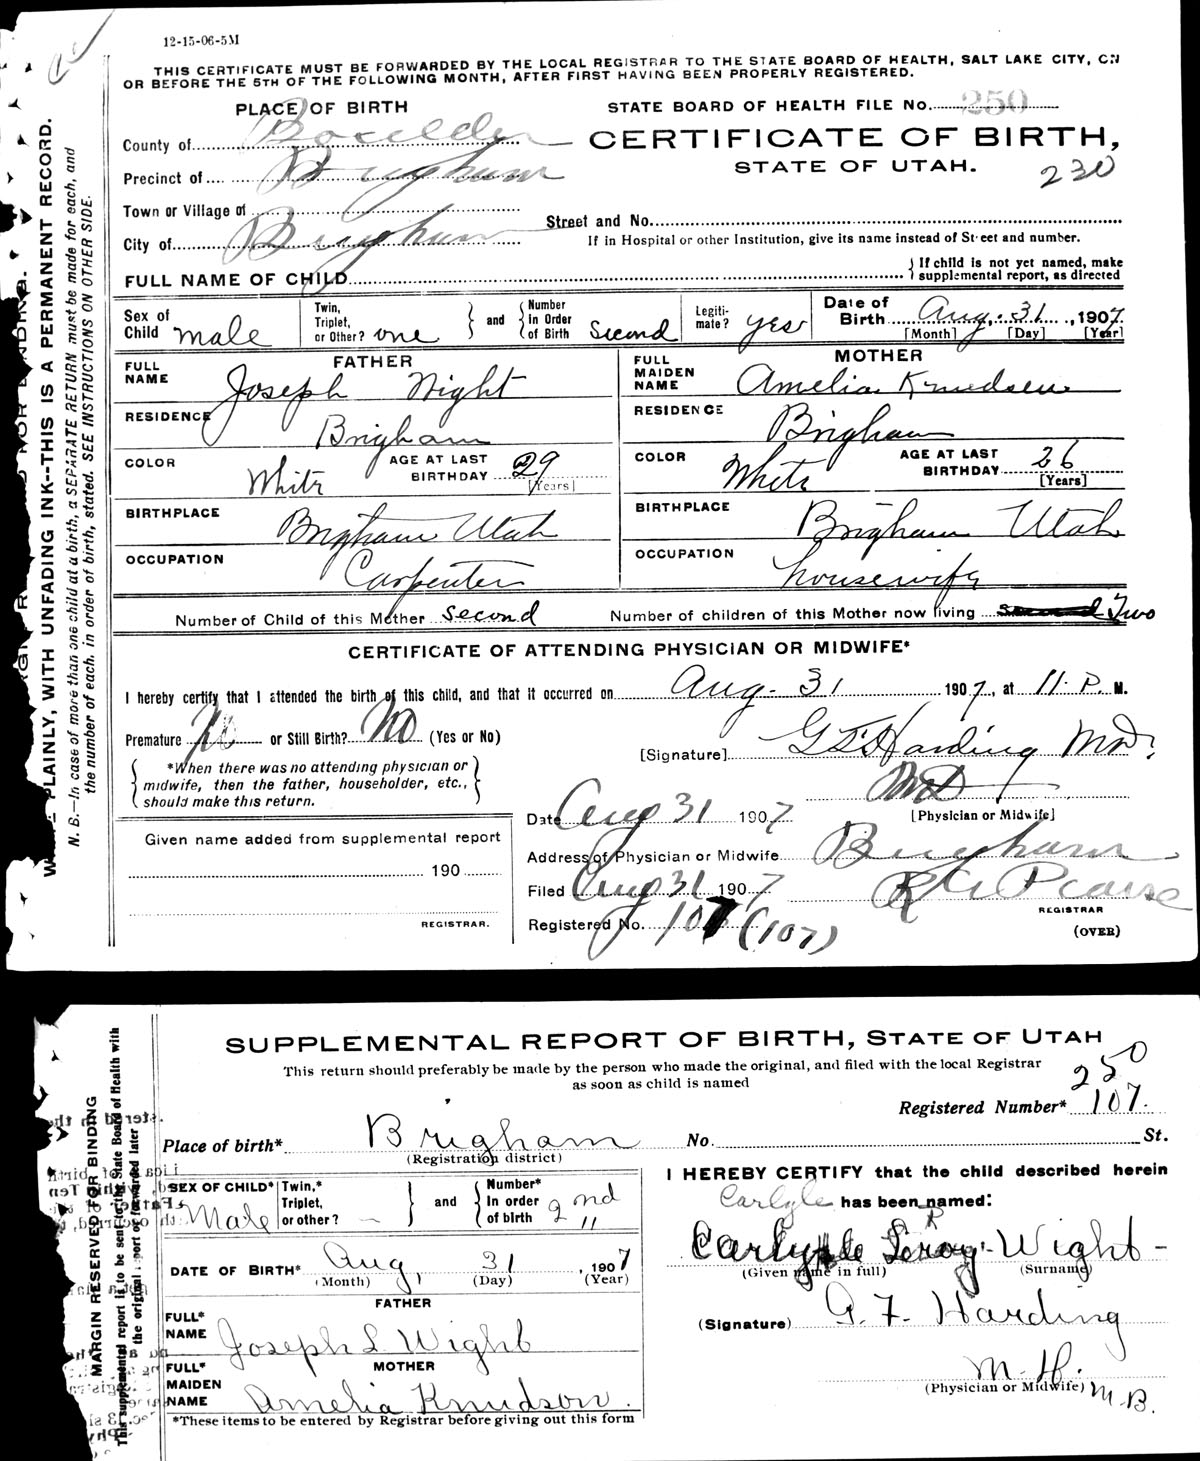 12-15-06-5M
THIS CERTIFICATE MUST BE FORWARDED BY THE LOCAL REGISTRAR TO THE STATE BOARD OF HEALTH, SALT LAKE CITY, ON
OR BEFORE THE 5TH OF THE FOLLOWING MONTH, AFTER FIRST HAVING BEEN PROPERLY REGISTERED.
PLACE OF BIRTH
STATE BOARD OF HEALTH FILE NO. 250
County of Boxelder
CERTIFICATE OF BIRTH,
STATE OF UTAH.
230
Precinct of Brigham
Town or Village of
Street and No.
City of Brigham
If in Hospital or other Institution, give its name instead of Street and number.
FULL NAME OF CHILD
If child is not yet named, make
supplemental report, as directed
Sex of Child male
Twin, Triplet, or Other? one
and
Number In Order of Birth second
Legiti-mate? yes
Date of Birth Aug. 31, 1907
[Month] [Day] [Year]
FATHER
MOTHER
FULL NAME Joseph Wight
FULL MAIDEN NAME Amelia Knudsen
RESIDENCE Brigham
RESIDENCE Brigham
COLOR White
AGE AT LAST BIRTHDAY 29 [Years]
COLOR White
AGE AT LAST BIRTHDAY 26 [Years]
BIRTHPLACE Brigham Utah
BIRTHPLACE Brigham Utah
OCCUPATION Carpenter
OCCUPATION housewife
Number of Child of this Mother second
Number of children of this Mother now living Two
CERTIFICATE OF ATTENDING PHYSICIAN OR MIDWIFE*
I hereby certify that I attended the birth of this child, and that it occurred on Aug. 31 1907, at 11. P. M.
Premature No or Still Birth? No (Yes or No)
[Signature] Harding MD.
*When there was no attending physician or
midwife, then the father, householder, etc.,
should make this return.
MD
[Physician or Midwife]
Date Aug 31 1907
Given name added from supplemental report
190
REGISTRAR.
Address of Physician or Midwife Brigham
Filed Aug 31 1907
REGISTRAR
Registered No. 107 (107)
(OVER)
PLAINLY, WITH UNFADING INK--THIS IS A PERMANENT RECORD.
N. B.--In case of more than one child at a birth, a SEPARATE RETURN must be made for each, and
the number of each, in order of birth, stated. SEE INSTRUCTIONS ON OTHER SIDE.
SUPPLEMENTAL REPORT OF BIRTH, STATE OF UTAH
This return should preferably be made by the person who made the original, and filed with the local Registrar
as soon as child is named
250
Registered Number* 107.
Place of birth* Brigham
No. St.
(Registration district)
I HEREBY CERTIFY that the child described herein
Carlyle has been named:
SEX OF CHILD* Male
Twin,* Triplet, or other?
and
Number* In order of birth 2nd
Carlyle Leroy Wight
(Given name in full) (Surname)
DATE OF BIRTH* Aug, 31, 1907
(Month) (Day) (Year)
FATHER
FULL* NAME Joseph L Wight
(Signature) G. F. Harding
MOTHER
FULL* MAIDEN NAME Amelia Knudson.
(Physician or Midwife) M.B.
*These items to be entered by Registrar before giving out this form
MARGIN RESERVED FOR BINDING
This supplemental report is to be sent to the State Board of Health with
the original report or forwarded later